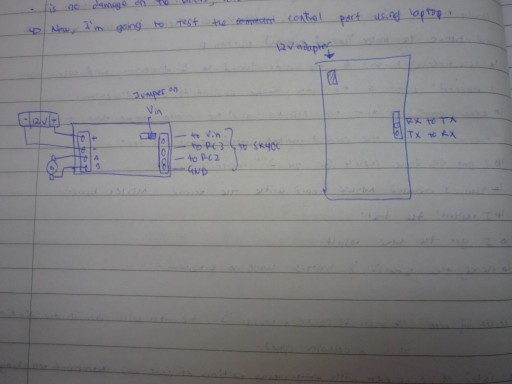 is no damage on the
Now, I'm going to test the control part using laptop.
12V adapter
Jumper on
Vin
- 12V +
to Vin
to RC3
to RC2
GND
RX to TX
TX to RX